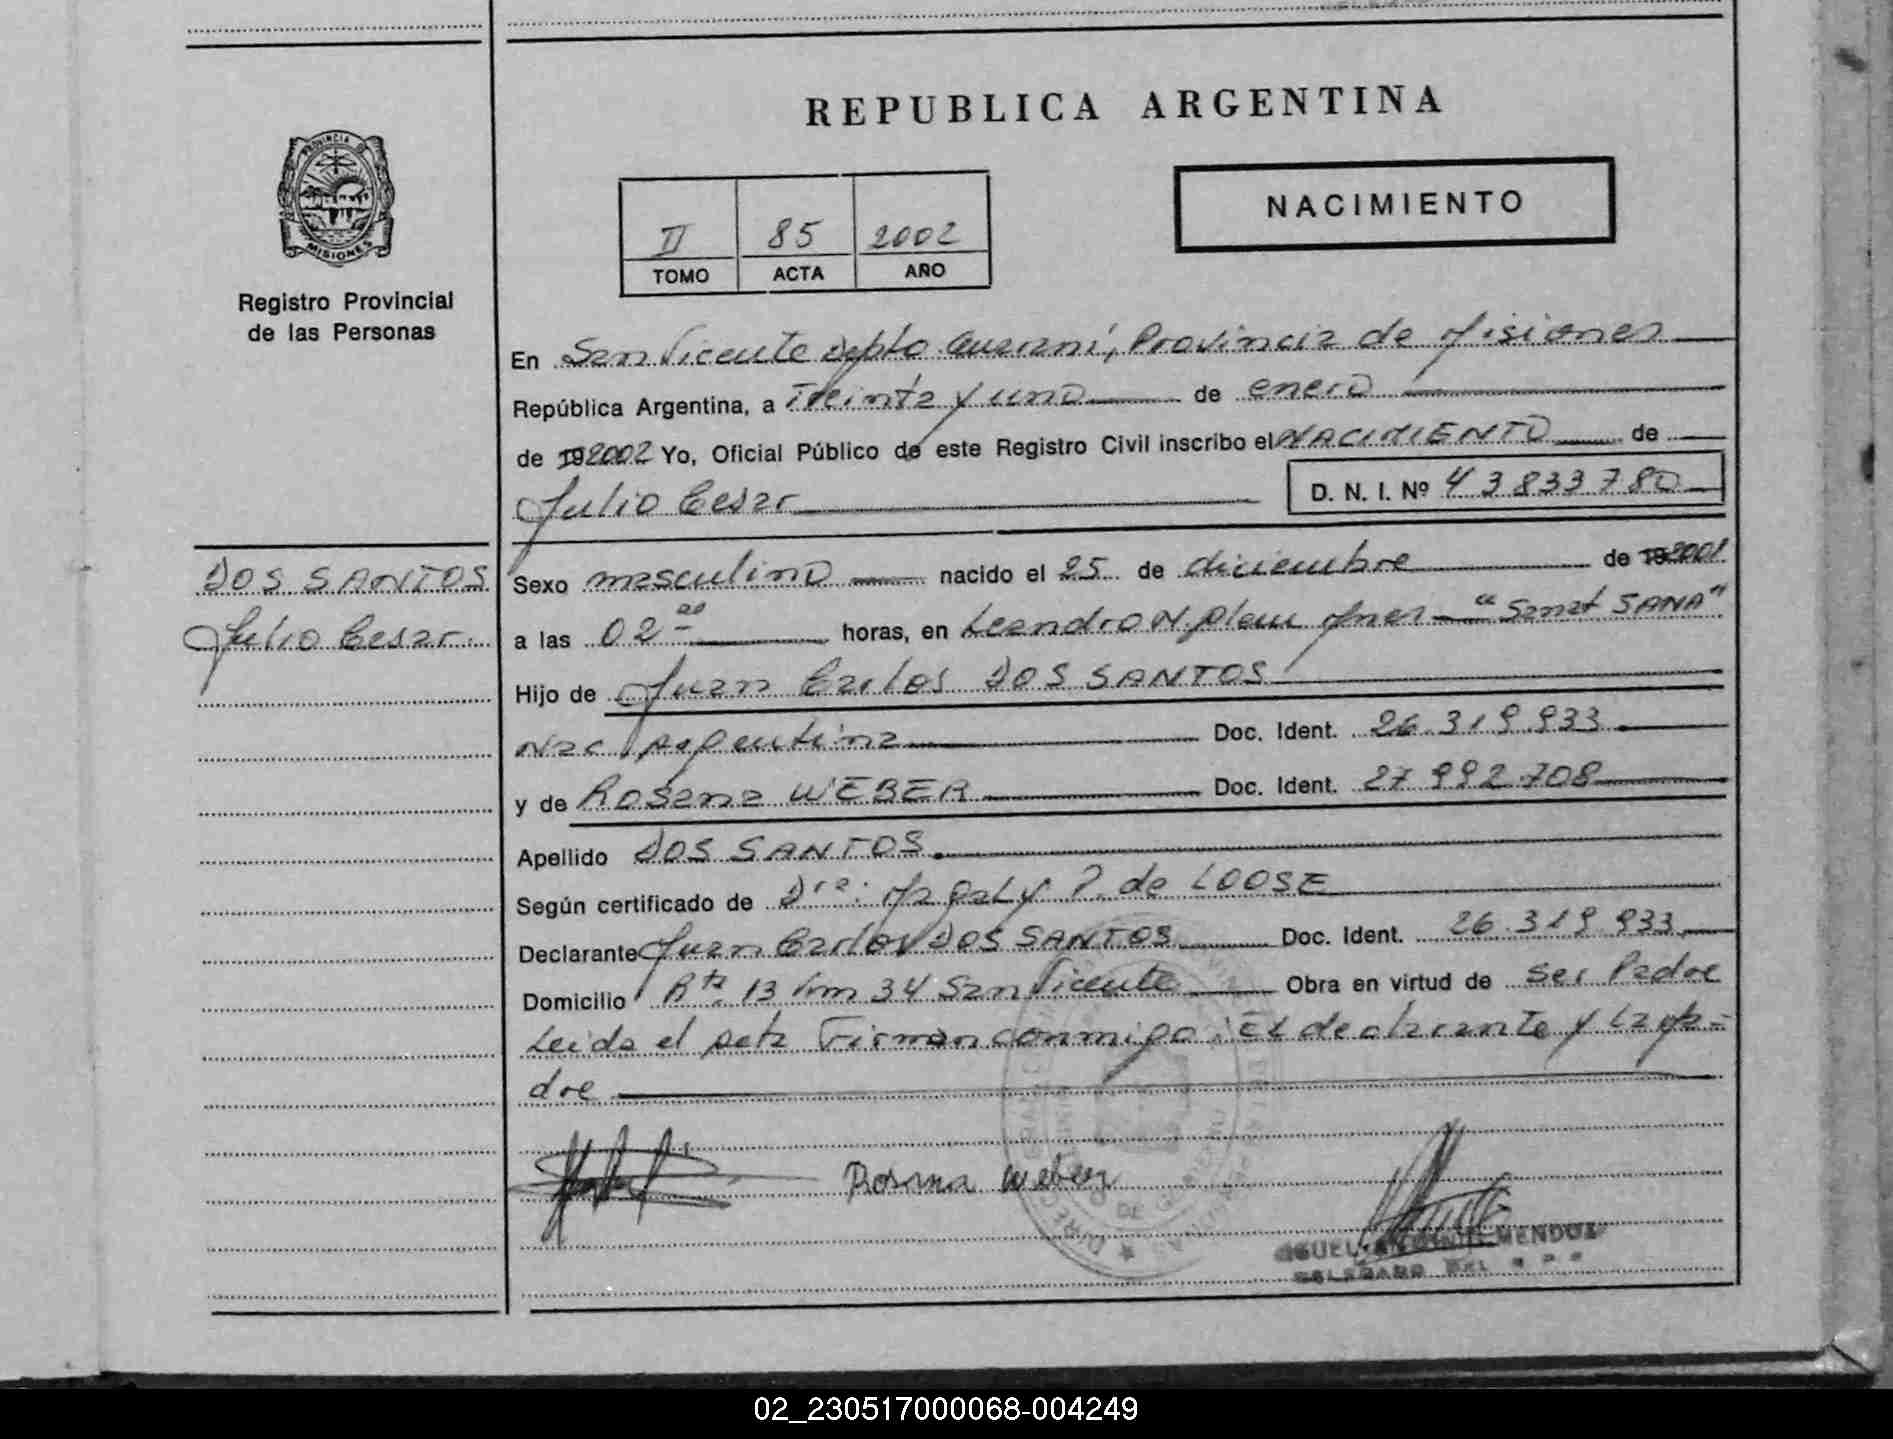 REPUBLICA ARGENTINA
PROVINCIA DE
MISIONES
Registro Provincial
de las Personas
II 85 2002
TOMO ACTA AÑO
NACIMIENTO
En San Vicente Depto Guarani, Provincia de Misiones
República Argentina, a Treinta y uno de enero
de 192002 Yo, Oficial Público de este Registro Civil inscribo el NACIMIENTO de
Julio Cesar D. N. I. Nº 43833780
DOS SANTOS
Julio Cesar.
Sexo masculino nacido el 25 de diciembre de 192001
a las 02 00 horas, en Leandro N. Alem Mnes "Sanat SANA"
Hijo de Juan Carlos DOS SANTOS
Nac Argentina Doc. Ident. 26.319.933
y de Rosana WEBER Doc. Ident. 27.992.708
Apellido DOS SANTOS.
Según certificado de Dra. Magaly P. de LOOSE
Declarante Juan Carlos DOS SANTOS Doc. Ident. 26.319.933
Domicilio Rta 13 km 34 San Vicente Obra en virtud de ser Padre
Leida el acta Firman conmigo: El declarante y La Ma=
dre
Rosana Weber
ANTONIO MENDOZA
DELEGADO DEL R. P. P.
02_230517000068-004249